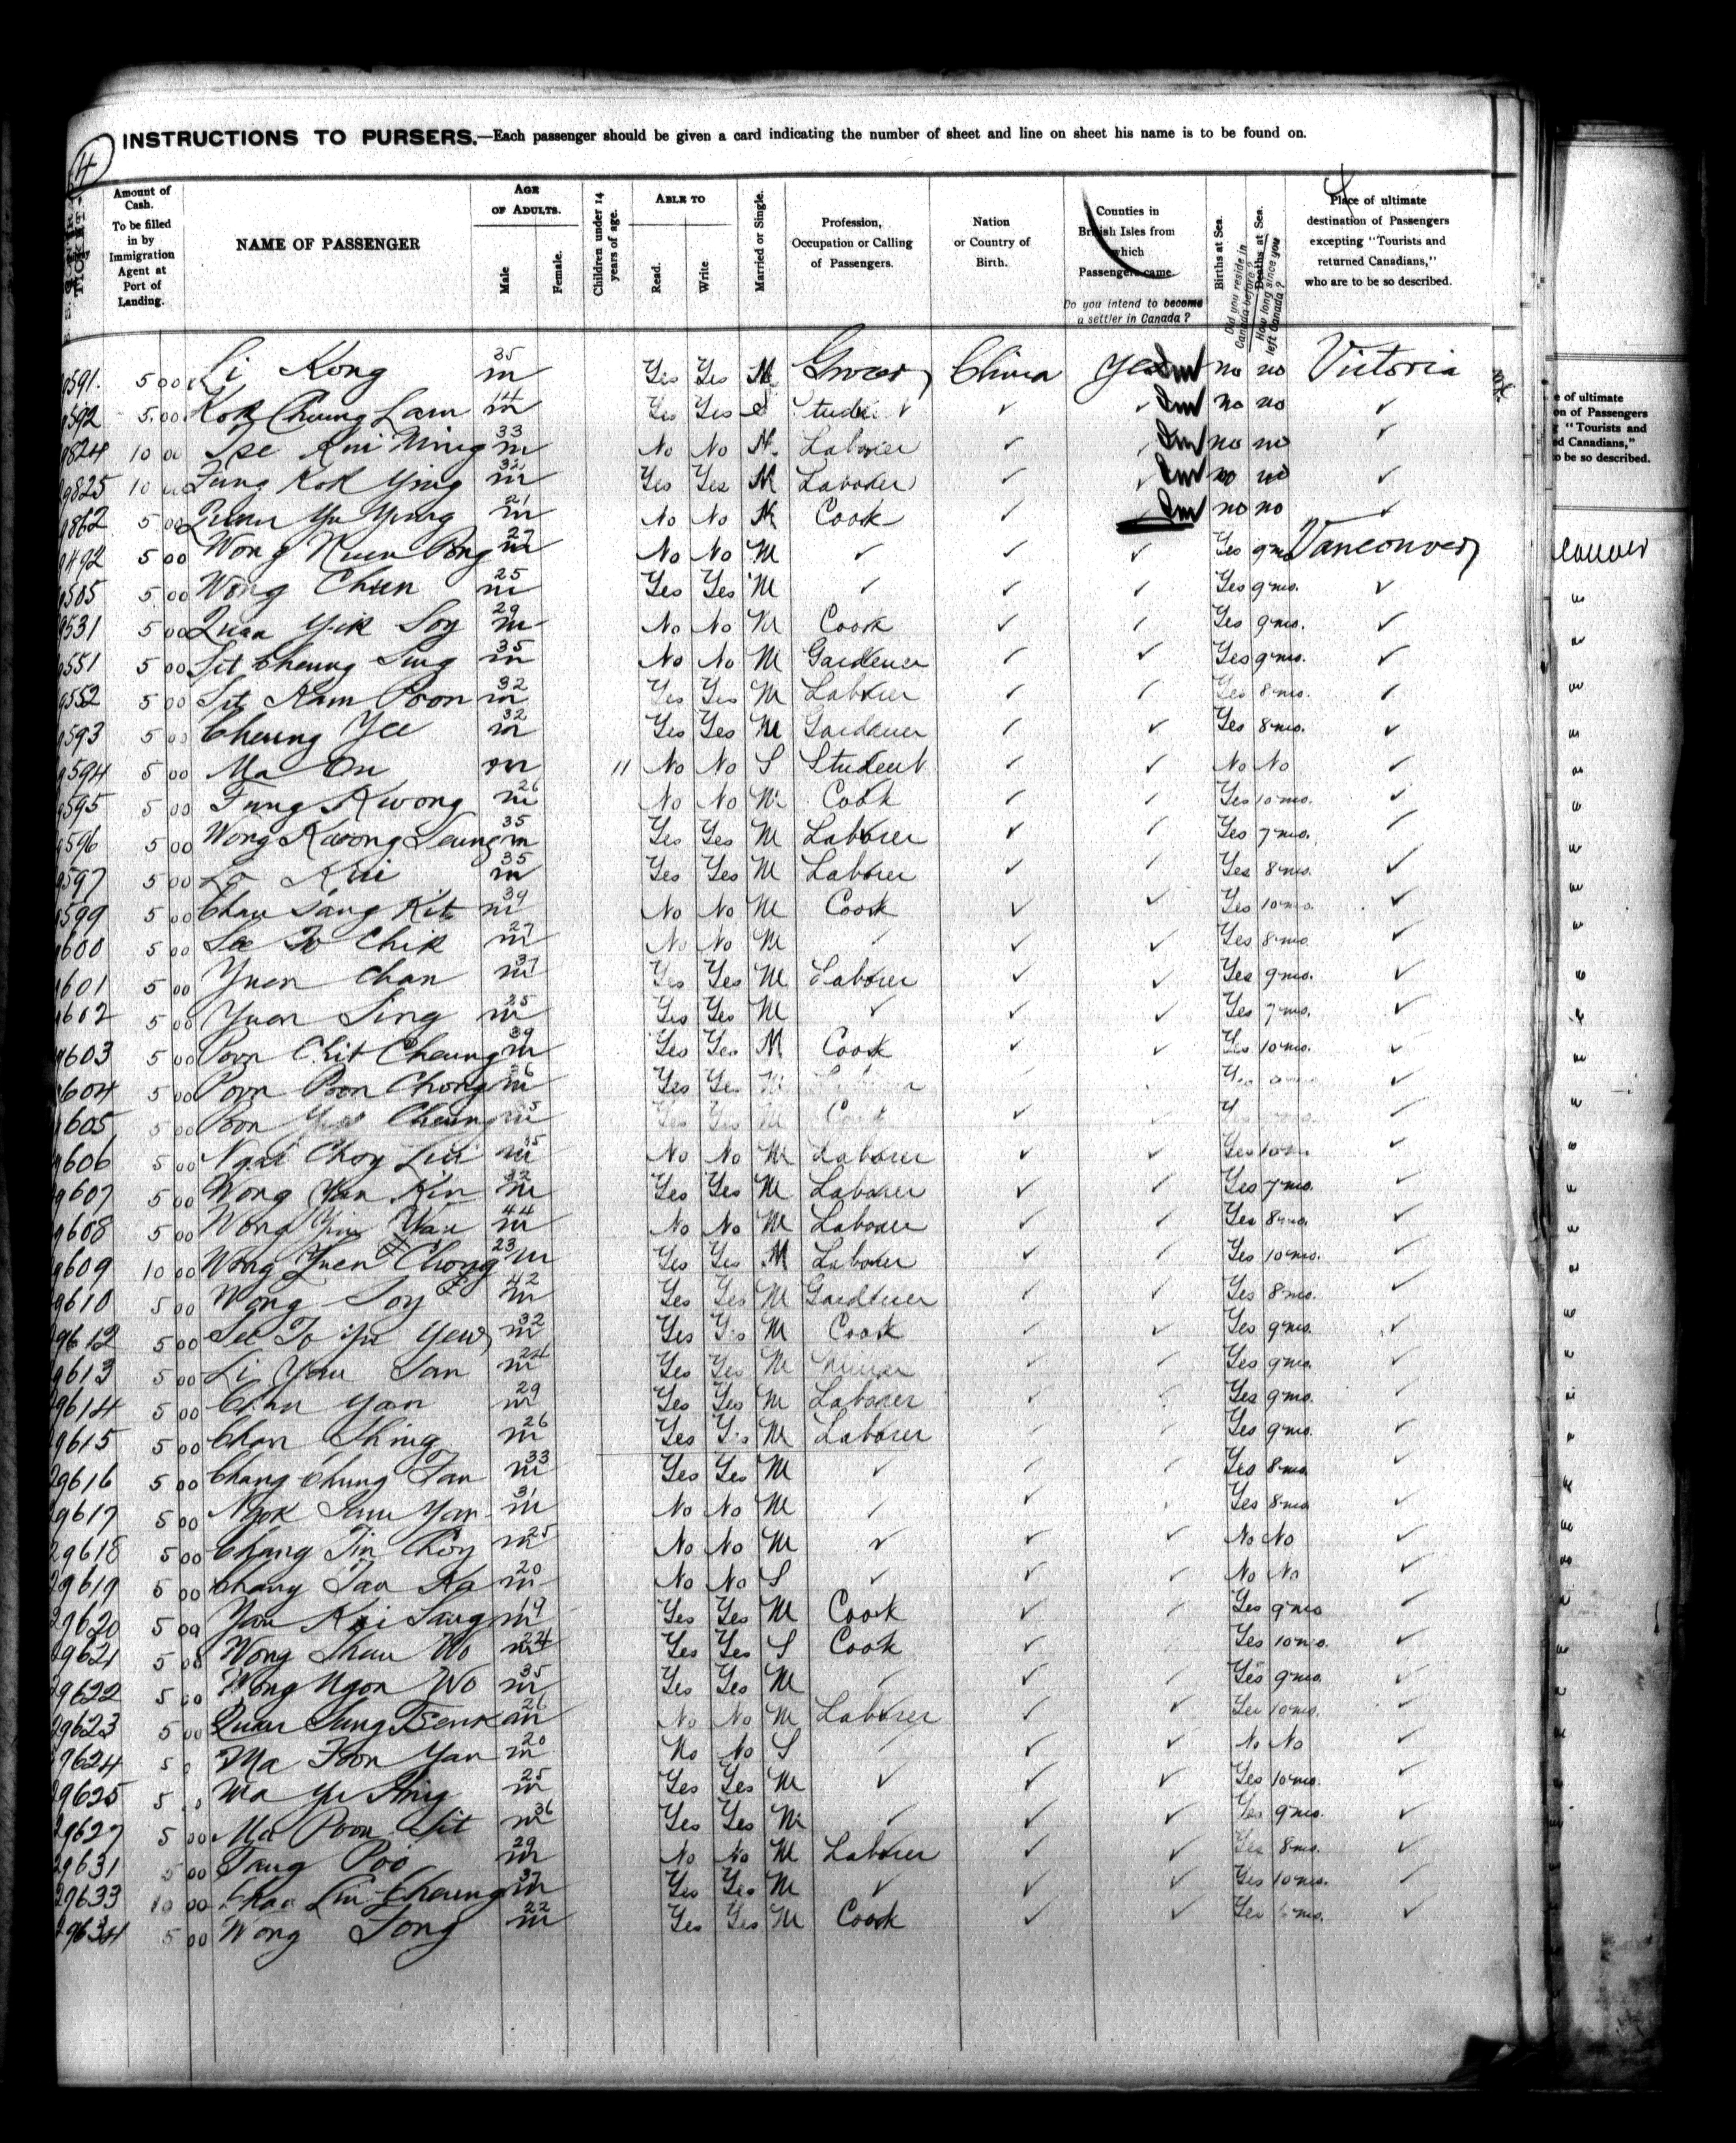 4
INSTRUCTIONS TO PURSERS.—Each passenger should be given a card indicating the number of sheet and line on sheet his name is to be found on.
Amount of Cash. To be filled in by Immigration Agent at Port of Landing.
NAME OF PASSENGER
AGE OF ADULTS.
Male
Female.
Children under 14 years of age.
ABLE TO
Read.
Write
Married or Single.
Profession, Occupation or Calling of Passengers.
Nation or Country of Birth.
Counties in British Isles from which Passengers came
Do you intend to become a settler in Canada?
Births at Sea.
Did you reside in Canada before?
Deaths at Sea.
How long since you left Canada?
Place of ultimate destination of Passengers excepting "Tourists and returned Canadians," who are to be so described.
591. 5 00 Li Kong 35 m Yes Yes M Grocer China Yes no no Victoria
9592 5 00 Kok Cheung Lam 14 m Yes Yes S Student ✓ ✓ no no ✓
9824 10 00 Tse Kui Ning 33 m No No M Laborer ✓ no no ✓
9825 10 00 Fung Kok Ying 32 m Yes Yes M Laborer ✓ ✓ no no ✓
9862 5 00 Quan Yu Yung 21 m No No M Cook ✓ no no ✓
9492 5 00 Wong Kuen Pong 27 m No No M ✓ ✓ ✓ Yes 9 mo Vancouver
9505 5 00 Wong Chun 25 m Yes Yes M ✓ ✓ ✓ Yes 9 mo. ✓
9531 5 00 Quan Yik Soy 29 m No No M Cook ✓ ✓ Yes 9 mo. ✓
9551 5 00 Sit Cheung Sing 35 m No No M Gardener ✓ ✓ Yes 9 mo. ✓
9552 5 00 Sit Kam Poon 32 m Yes Yes M Laborer ✓ ✓ Yes 8 mo. ✓
9593 5 00 Cheung Yee 32 m Yes Yes M Gardener ✓ ✓ Yes 8 mo. ✓
9594 5 00 Ma On m 11 No No S Student ✓ ✓ No No ✓
9595 5 00 Fung Kwong 26 m No No M Cook ✓ ✓ Yes 10 mo. ✓
9596 5 00 Wong Kwong Leung 35 m Yes Yes M Laborer ✓ ✓ Yes 7 mo. ✓
9597 5 00 Lo Kui 35 m Yes Yes M Laborer ✓ ✓ Yes 8 mo. ✓
9599 5 00 Chan Sang Kit 39 m No No M Cook ✓ ✓ Yes 10 mo. ✓
9600 5 00 See To Chik 27 m No No M ✓ ✓ ✓ Yes 8 mo. ✓
9601 5 00 Yuen Chan 37 m Yes Yes M Laborer ✓ ✓ Yes 9 mo. ✓
9602 5 00 Yuen Sing 25 m Yes Yes M ✓ ✓ ✓ Yes 7 mo. ✓
9603 5 00 Poon Chit Cheung 39 m Yes Yes M Cook ✓ ✓ Yes 10 mo. ✓
9604 5 00 Poon Poon Chong 36 m Yes Yes M Yes ✓
9605 5 00 Poon Cheung m Yes Yes M Cook ✓ ✓
9606 5 00 Ngai Choy Lui m No No M Laborer ✓ ✓ Yes 10 m. ✓
9607 5 00 Wong Yan Kin 32 m Yes Yes M Laborer ✓ ✓ Yes 7 mo. ✓
9608 5 00 Wong Yin Wan 44 m No No M Laborer ✓ ✓ Yes 8 mo. ✓
9609 10 00 Wong Yuen Chong 23 m Yes Yes M Laborer ✓ ✓ Yes 10 mo. ✓
9610 5 00 Wong Soy 42 m Yes Yes M Gardener ✓ ✓ Yes 8 mo. ✓
29612 5 00 See To Yu Yew 32 m Yes Yes M Cook ✓ ✓ Yes 9 mo. ✓
9613 5 00 Li Yau San 24 m Yes Yes M Miner ✓ ✓ Yes 9 mo. ✓
29614 5 00 Chu Yan 29 m Yes Yes M Laborer ✓ ✓ Yes 9 mo. ✓
29615 5 00 Chan Shing 26 m Yes Yes M Laborer ✓ ✓ Yes 9 mo. ✓
29616 5 00 Chang Chung Fan 33 m Yes Yes M ✓ ✓ ✓ Yes 8 mo. ✓
29617 5 00 Ngok Sam Yan 31 m No No M ✓ ✓ ✓ Yes 8 mo ✓
29618 5 00 Chang Tin Choy 25 m No No M ✓ ✓ ✓ No No ✓
29619 5 00 Chang Tan Ka 20 m No No S ✓ ✓ ✓ No No ✓
29620 5 00 Yan Kai Sang 19 m Yes Yes M Cook ✓ ✓ Yes 9 mo ✓
29621 5 00 Wong Shau Wo 24 m Yes Yes S Cook ✓ Yes 10 mo. ✓
29622 5 00 Wong Ngon Wo 35 m Yes Yes M ✓ ✓ ✓ Yes 9 mo. ✓
29623 5 00 Quan Sung 26 m No No M Laborer ✓ ✓ Yes 10 mo. ✓
29624 5 0 Ma Foon Yan 20 m No No S ✓ ✓ ✓ No No ✓
29625 5 0 Ma Yu Hing 25 m Yes Yes M ✓ ✓ ✓ Yes 10 mo. ✓
29627 5 00 Ma Poon Sit 36 m Yes Yes M ✓ ✓ ✓ Yes 9 mo. ✓
29631 5 00 Fang Poo 29 m No No M Laborer ✓ ✓ Yes 8 mo. ✓
29633 10 00 Chao Lin Cheung 37 m Yes Yes M ✓ ✓ ✓ Yes 10 mo. ✓
29634 5 00 Wong Song 22 m Yes Yes M Cook ✓ ✓ Yes 6 mo. ✓
e of ultimate
on of Passengers
"Tourists and
ed Canadians,"
o be so described.
couver